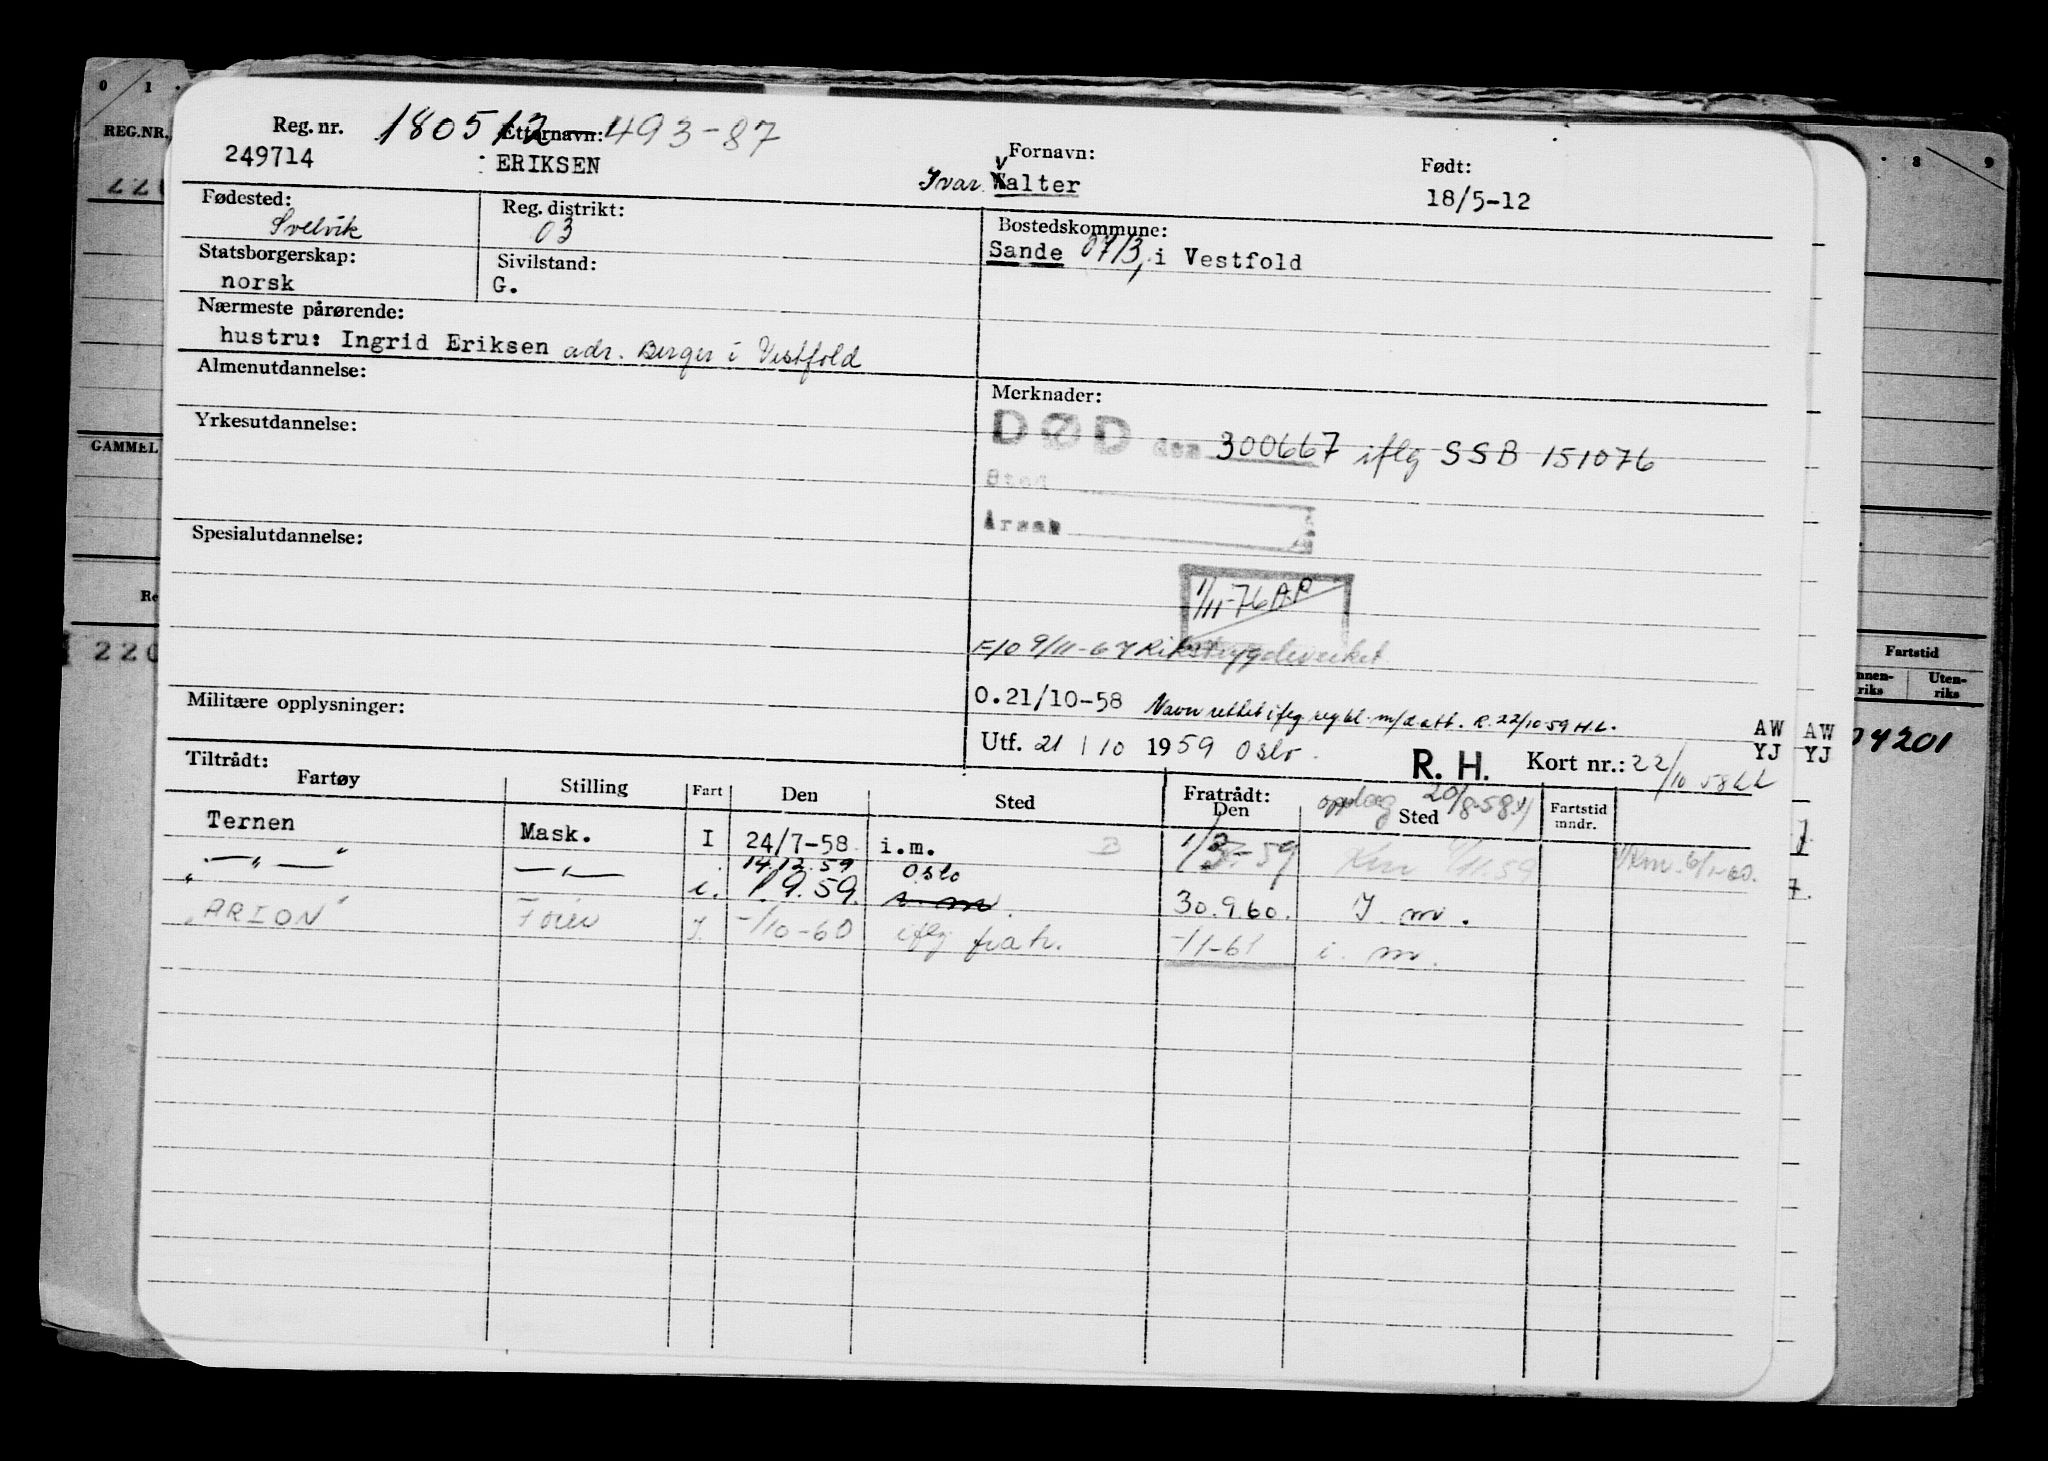 0 1
REG.NR.
GAMMEL
220
8 9
Fartstid
Uten-
riks
04201
Reg. nr. 180512-493-87
Etternavn:
Fornavn:
Født:
249714
ERIKSEN
Ivar Valter
18/5-12
Fødested:
Svelvik
Reg. distrikt:
03
Bostedskommune:
Sande 0713, i Vestfold
Statsborgerskap:
norsk
Sivilstand:
G.
Nærmeste pårørende:
hustru: Ingrid Eriksen adr. Berger i Vestfold
Almenutdannelse:
Merknader:
DØD den 300667 iflg SSB 151076
Yrkesutdannelse:
Sted
Årsak
Spesialutdannelse:
1/11-76 A.P
F/O 9/11-67 Rikstrygdeverket
Militære opplysninger:
0.21/10-58 Navn rettet iflg reg bl. m/d att. R. 22/10 59 H.L.
AW AW
Utf. 21/10 1959 Oslo.
R. H. Kort nr.: 22/10 58
YJ YJ
Tiltrådt:
Fartøy Stilling Fart Den Sted
Fratrådt:
Den
opplag 20/8-58
Sted
Fartstid
mndr.
Ternen Mask. I 24/7-58 i.m. B 1/3-59
14.12.59 Oslo
— " — — " — i. 1.9.59. i. m. 30.9.60. I m.
"ARION" I -/10-60 iflg fratr. -/1-61 i. m.